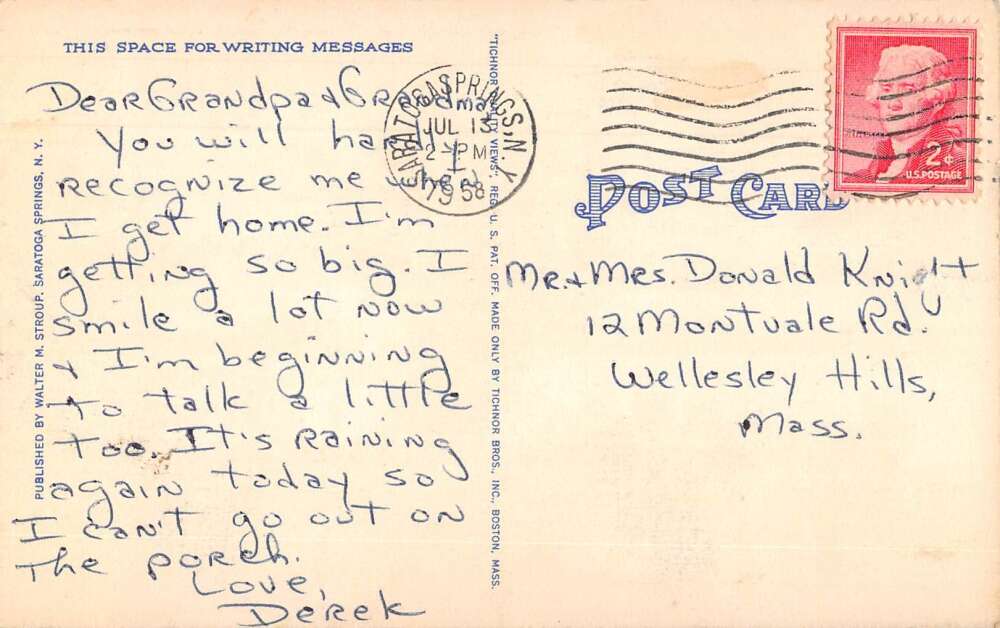 THIS SPACE FOR WRITING MESSAGES
Dear Grandpa & Grandma,
You will hardly
recognize me when
I get home. I'm
getting so big. I
smile a lot now
& I'm beginning
to talk a little
too. It's raining
again today so
I can't go out on
the porch.
Love,
Derek
PUBLISHED BY WALTER M. STROUP, SARATOGA SPRINGS, N. Y.
"TICHNOR QUALITY VIEWS," REG. U. S. PAT. OFF. MADE ONLY BY TICHNOR BROS., INC., BOSTON, MASS.
SARATOGA SPRINGS, N.Y.
JUL 13
2 - PM
1958
2¢
U.S. POSTAGE
POST CARD
Mr. & Mrs. Donald Knight
12 Montvale Rd.
Wellesley Hills,
Mass.